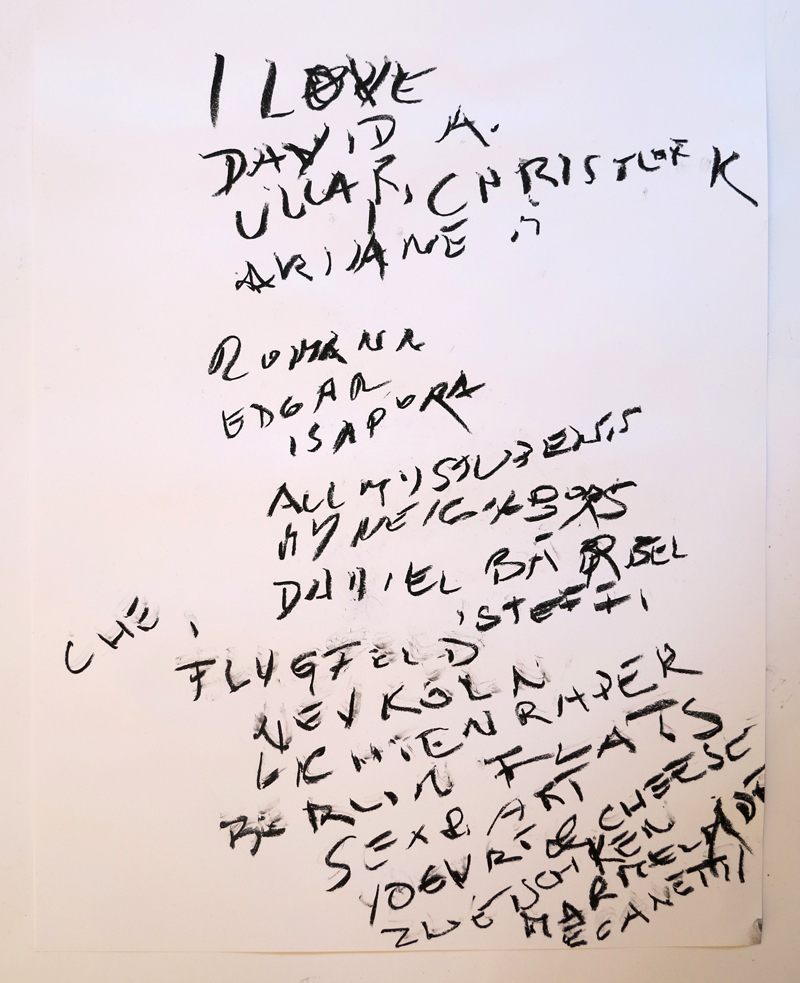 I LOVE
DAVID A.
ULLA K, CHRISTLOF K
ARIJANE
ROMANA
EDGAR
ISADORA
ALL MY STUDENTS
MY NEIGHBORS
DANIEL BÄRBEL
CHE, STEFFI,
FLUGFELD
NEUKÖLN
LICHTENRADER
BERLIN FLATS
SEX & ART
YOGURT & CHEESE
ZWETSCHKEN
MARMELADE
ECANETTI